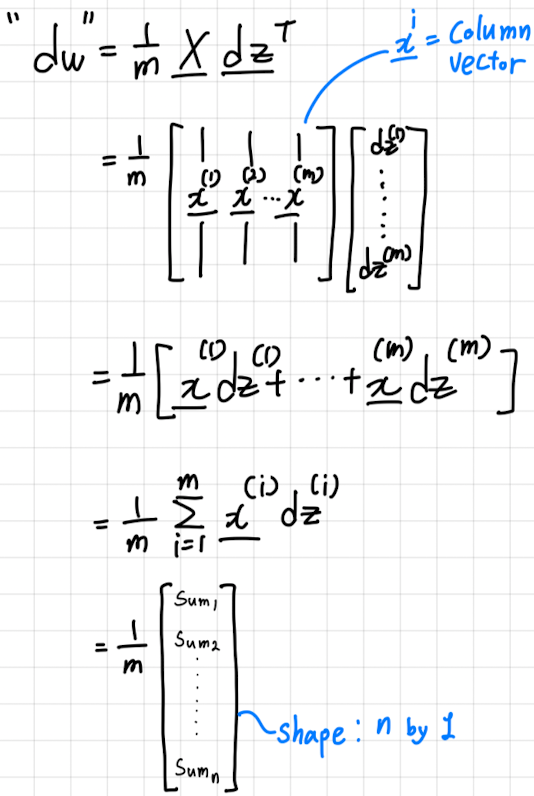 "dw" = 1/m X dz^T
x^i = Column
vector
= 1/m [ x^(1) x^(2) ... x^(m) ] [ dz^(1) ⋮ dz^(m) ]
= 1/m [ x^(1) dz^(1) + ... + x^(m) dz^(m) ]
= 1/m Σ_{i=1}^{m} x^(i) dz^(i)
= 1/m [ Sum₁ Sum₂ ⋮ Sumₙ ]
shape : n by 1